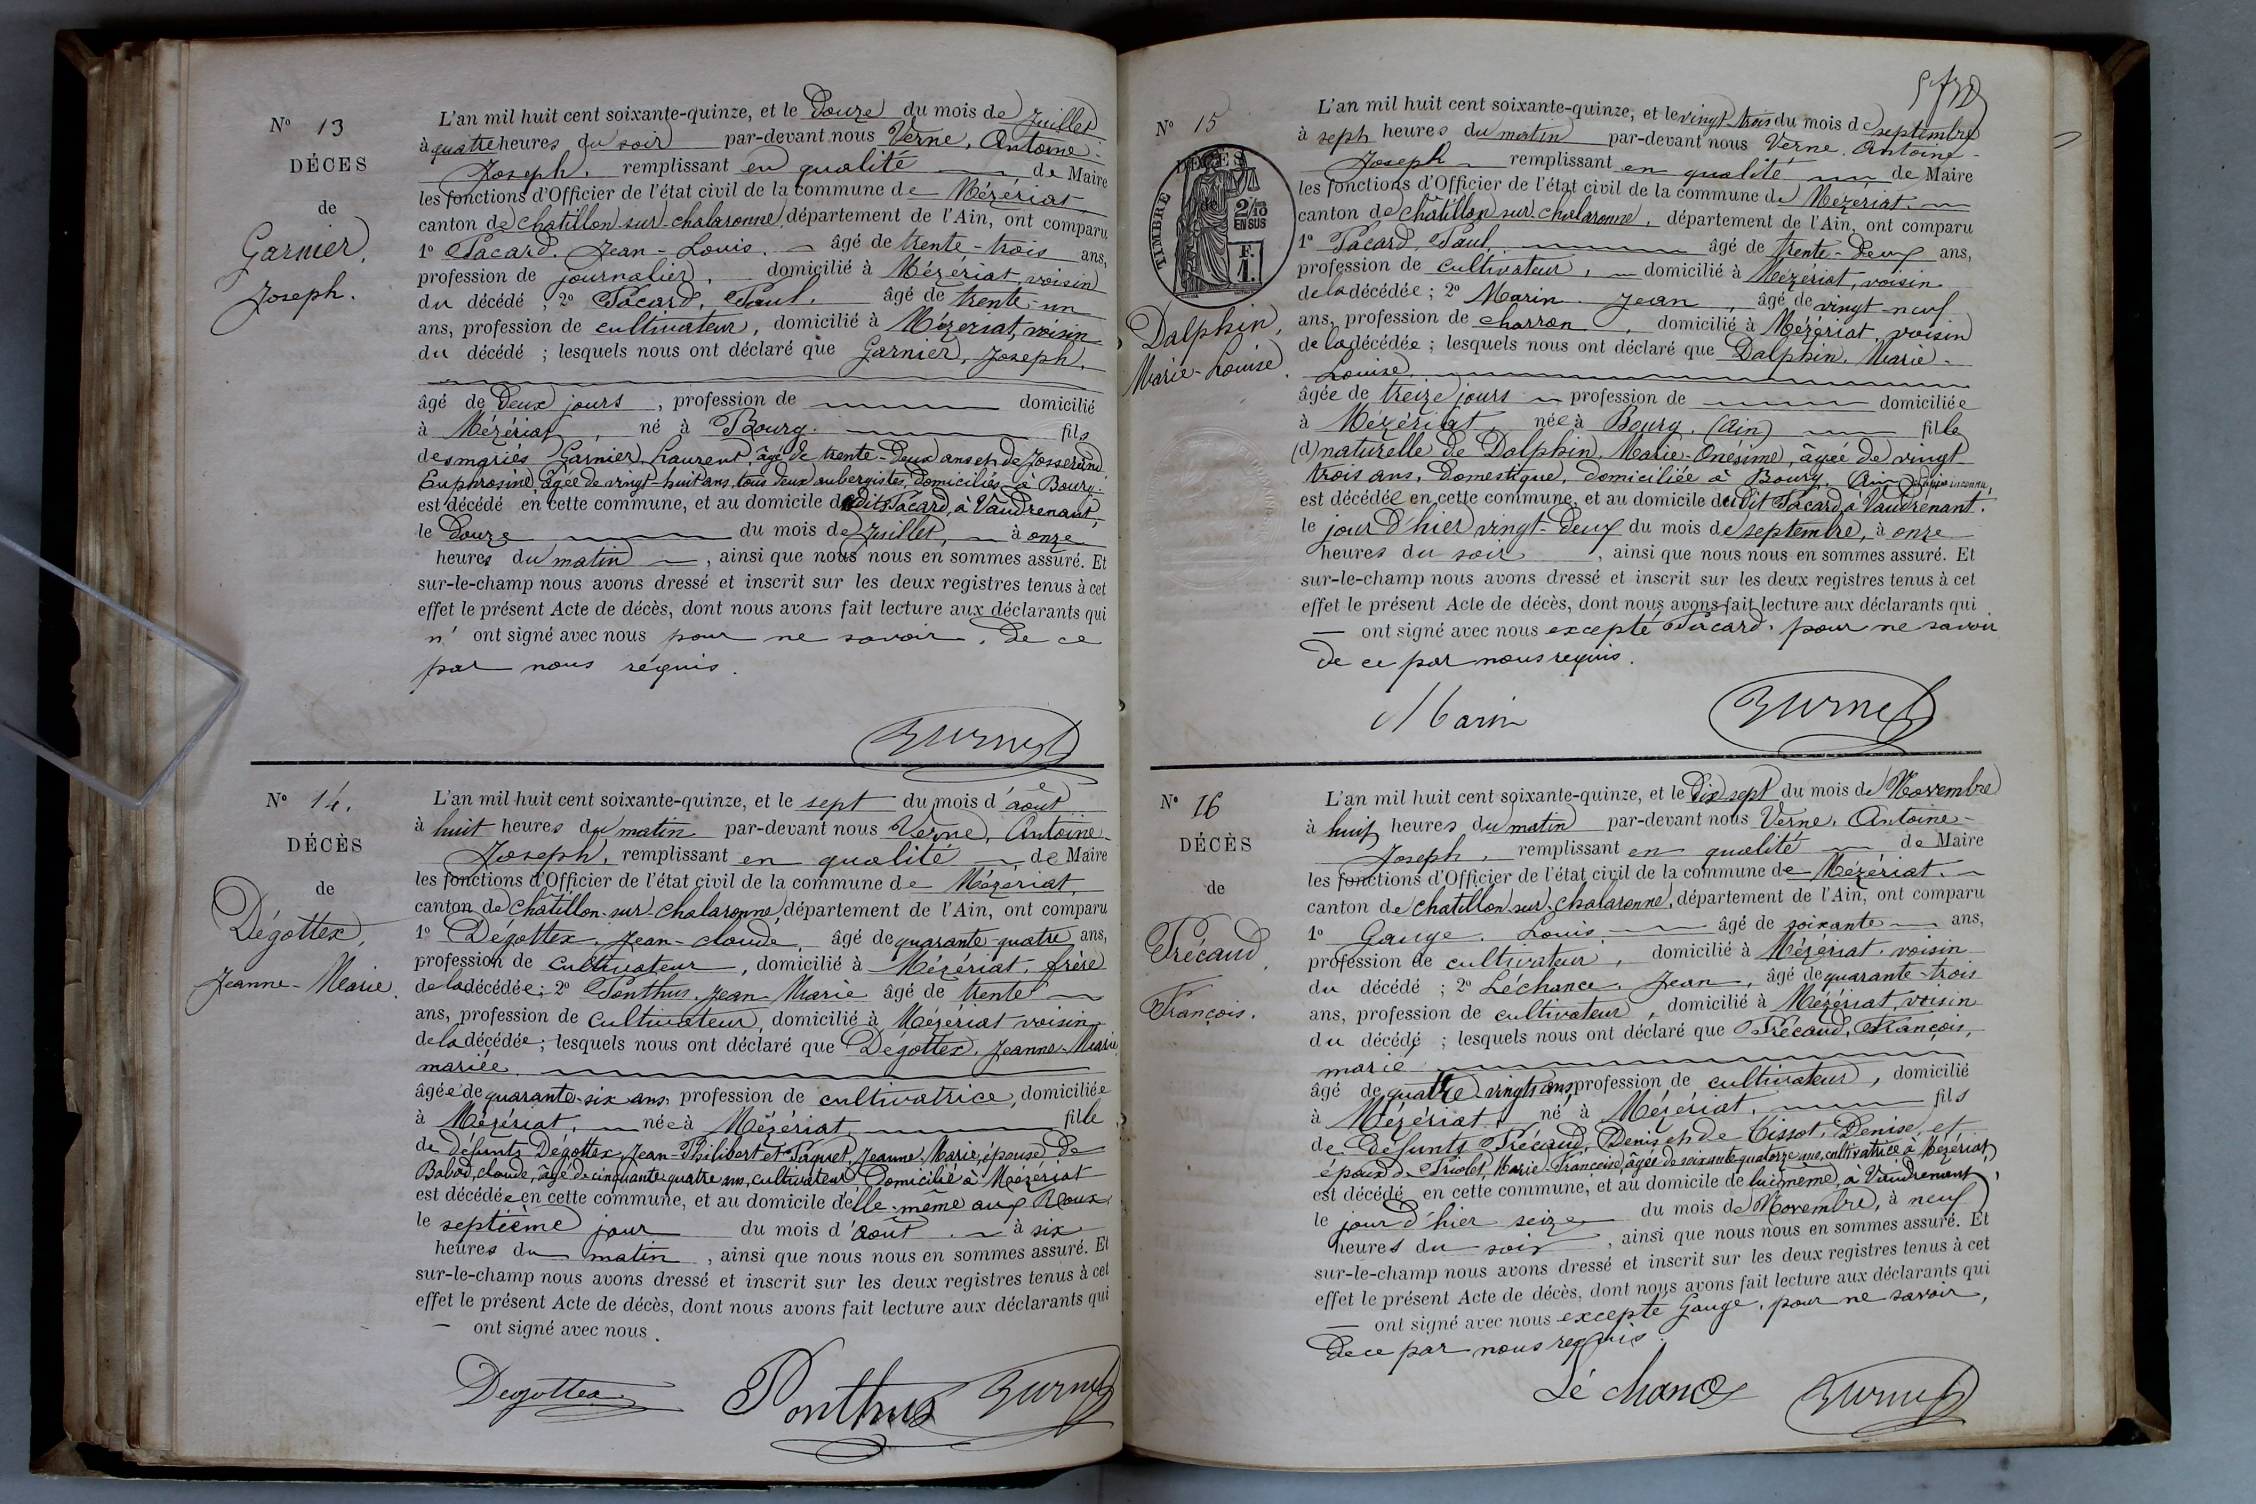 N° 13
DÉCES
de
Garnier,
Joseph.
L'an mil huit cent soixante-quinze, et le Douze du mois de Juillet
à quatre heures du soir par-devant nous Verne, Antoine-
Joseph, remplissant en qualité de Maire
les fonctions d'Officier de l'état civil de la commune de Mézériat,
canton de Chatillon-sur-chalaronne, département de l'Ain, ont comparu
1° Pacard, Jean-Louis. âgé de trente-trois ans,
profession de journalier, domicilié à Mézériat, voisin
du décédé ; 2° Pacard, Paul, âgé de trente-un
ans, profession de cultivateur, domicilié à Mézériat, voisin
du décédé ; lesquels nous ont déclaré que Garnier, Joseph,
âgé de Deux jours , profession de domicilié
à Mézériat, né à Bourg. fils
des mariés Garnier, Laurent, âgé de trente-Deux ans et de Josserand
Euphrosine, âgée de vingt-huit ans, tous deux aubergistes, Domiciliés à Bourg.
est décédé en cette commune, et au domicile dudit Pacard, à Vaudrenant,
le Douze du mois de Juillet, à onze
heures du matin , ainsi que nous nous en sommes assuré. Et
sur-le-champ nous avons dressé et inscrit sur les deux registres tenus à cet
effet le présent Acte de décès, dont nous avons fait lecture aux déclarants qui
n' ont signé avec nous pour ne savoir, De ce
par nous requis.
N° 14.
DÉCÈS
de
Dégottex,
Jeanne-Marie.
L'an mil huit cent soixante-quinze, et le sept du mois d'août
à huit heures du matin par-devant nous Verne, Antoine-
Joseph, remplissant en qualité de Maire
les fonctions d'Officier de l'état civil de la commune de Mézériat,
canton de Châtillon-sur-chalaronne, département de l'Ain, ont comparu
1° Dégottex, Jean-claude, âgé de quarante-quatre ans,
profession de cultivateur, domicilié à Mézériat, frère
de la décédée ; 2° Ponthus, Jean-Marie âgé de trente
ans, profession de cultivateur, domicilié à Mézériat voisin
de la décédée ; lesquels nous ont déclaré que Dégottex, Jeanne-Marie
mariée
âgée de quarante-six ans, profession de cultivatrice, domiciliée
à Mézériat, née à Mézériat, fille
de défunts Dégottex, Jean-Philibert et Paquet, Jeanne-Marie, épouse de
Babad, claude, âgé de cinquante-quatre ans, cultivateur Domicilié à Mézériat
est décédée en cette commune, et au domicile d'elle-même aux Roux
le septième jour du mois d'août. à six
heures du matin , ainsi que nous nous en sommes assuré. Et
sur-le-champ nous avons dressé et inscrit sur les deux registres tenus à cet
effet le présent Acte de décès, dont nous avons fait lecture aux déclarants qui
ont signé avec nous.
Degottex
Ponthus
N° 15
DÉCÈS
de
TIMBRE
2/10
EN SUS
F.
1.
Dalphin,
Marie-Louise.
L'an mil huit cent soixante-quinze, et le vingt-trois du mois de septembre
à sept heures du matin par-devant nous Verne, Antoine-
Joseph remplissant en qualité de Maire
les fonctions d'Officier de l'état civil de la commune de Mézériat,
canton de Châtillon-sur-chalaronne, département de l'Ain, ont comparu
1° Pacard, Paul, âgé de trente-Deux ans,
profession de cultivateur, domicilié à Mézériat, voisin
de la décédée ; 2° Marin Jean, âgé de vingt-neuf
ans, profession de charron , domicilié à Mézériat, voisin
de la décédée ; lesquels nous ont déclaré que Dalphin, Marie-
Louise,
âgée de treize jours profession de domiciliée
à Mézériat, née à Bourg. (Ain) fille
(d) naturelle de Dalphin, Marie-Onésime, âgée de vingt-
trois ans, Domestique, Domiciliée à Bourg. Ain inconnu,
est décédée en cette commune, et au domicile dudit Pacard, à Vaudrenant.
le jour D'hier vingt-Deux du mois de septembre, à onze
heures du soir , ainsi que nous nous en sommes assuré. Et
sur-le-champ nous avons dressé et inscrit sur les deux registres tenus à cet
effet le présent Acte de décès, dont nous avons fait lecture aux déclarants qui
ont signé avec nous excepté Pacard, pour ne savoir
De ce par nous requis.
Marin
N° 16
DÉCÈS
de
Précaud,
François.
L'an mil huit cent soixante-quinze, et le Dix sept du mois de Novembre
à huit heures du matin par-devant nous Verne, Antoine-
Joseph, remplissant en qualité de Maire
les fonctions d'Officier de l'état civil de la commune de Mézériat,
canton de Chatillon-sur-chalaronne, département de l'Ain, ont comparu
1° Gauge, Louis, âgé de soixante ans,
profession de cultivateur, domicilié à Mézériat, voisin
du décédé ; 2° Léchance, Jean, âgé de quarante-trois
ans, profession de cultivateur, domicilié à Mézériat, voisin
du décédé ; lesquels nous ont déclaré que Précaud, François,
marié
âgé de quatre-vingts ans, profession de cultivateur, domicilié
à Mézériat, né à Mézériat, fils
de Défunts Précaud, Denis et de Tissot, Denise, et
époux de Priolet, Marie-Françoise, âgée de soixante-quatorze ans, cultivatrice à Mézériat,
est décédé en cette commune, et au domicile de lui-même, à Vaudrenant,
le jour d'hier seize du mois de Novembre, à neuf
heures du soir , ainsi que nous nous en sommes assuré. Et
sur-le-champ nous avons dressé et inscrit sur les deux registres tenus à cet
effet le présent Acte de décès, dont nous avons fait lecture aux déclarants qui
ont signé avec nous excepté Gauge, pour ne savoir,
De ce par nous requis.
Léchance